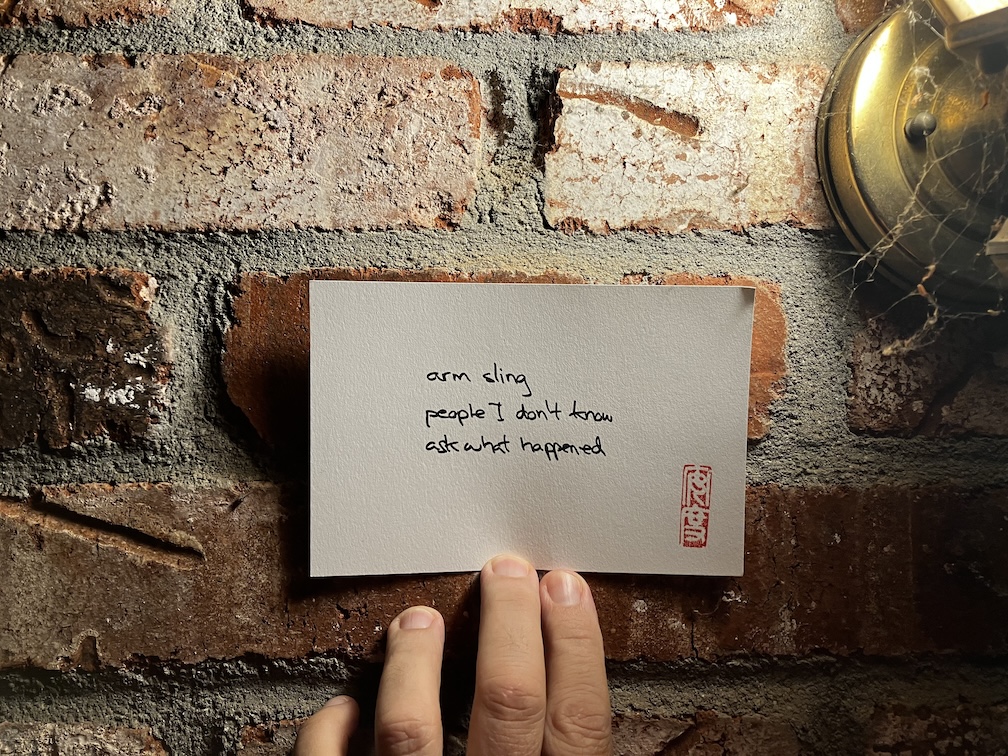 arm sling
people I don't know
ask what happened